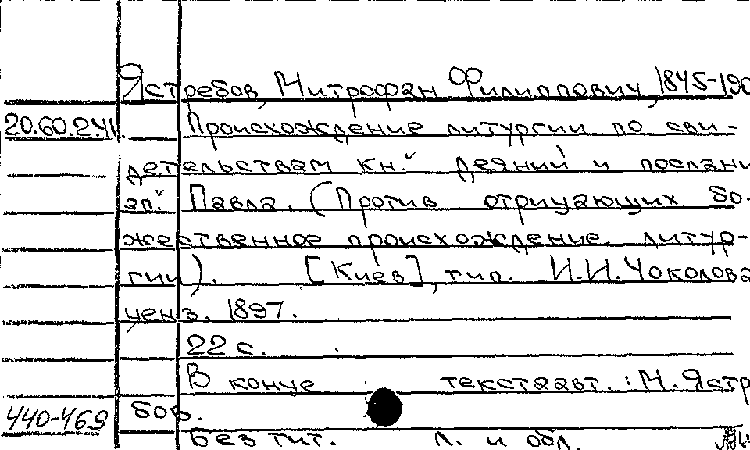 Ястребов, Митрофан Филиппович, 1845-190
20.60.241 Происхождение литургии по сви-
детельствам кн." Деяний и послани
ап." Павла. (Против отрицающих бо-
жественное происхождение литур-
гии). [Киев], тип. И.И.Чоколова
ценз. 1897.
22 с.
В конце текста авт.: М.Ястр
440-469 бов.
Без тит. л. и обл.